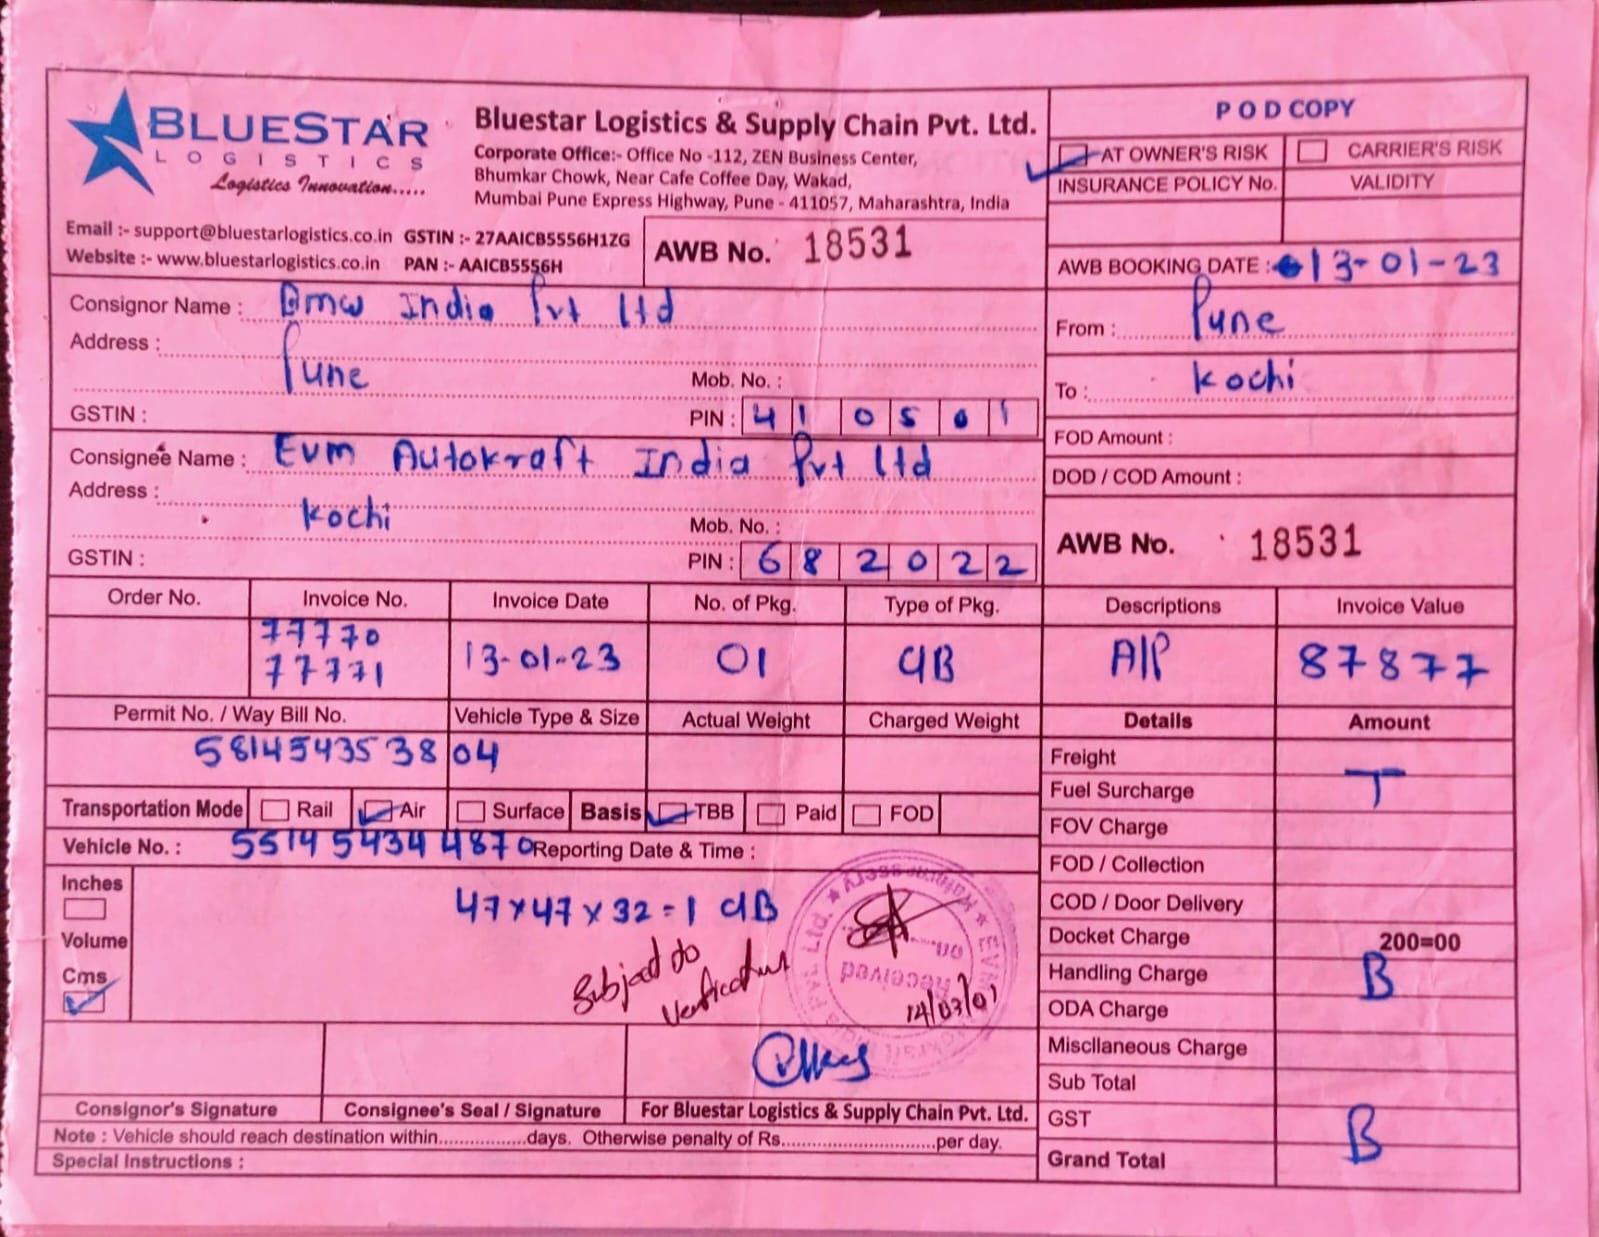 BLUESTAR
LOGISTICS
Logistics Innovation.....
Bluestar Logistics & Supply Chain Pvt. Ltd.
Corporate Office:- Office No -112, ZEN Business Center,
Bhumkar Chowk, Near Cafe Coffee Day, Wakad,
Mumbai Pune Express Highway, Pune - 411057, Maharashtra, India
Email :- support@bluestarlogistics.co.in GSTIN :- 27AAICB5556H1ZG
Website :- www.bluestarlogistics.co.in PAN :- AAICB5556H
AWB No. 18531
P O D COPY
AT OWNER'S RISK CARRIER'S RISK
INSURANCE POLICY No. VALIDITY
AWB BOOKING DATE : 13-01-23
Consignor Name : Bmw India Pvt ltd
Address :
Pune
Mob. No. :
GSTIN : PIN : 410501
From : Pune
To : Kochi
FOD Amount :
DOD / COD Amount :
Consignee Name : Evm Autokraft India Pvt ltd
Address :
Kochi
Mob. No. :
GSTIN : PIN : 682022
AWB No. 18531
Order No. Invoice No. Invoice Date No. of Pkg. Type of Pkg. Descriptions Invoice Value
77770
77771 13-01-23 01 CIB A/P 87877
Permit No. / Way Bill No. Vehicle Type & Size Actual Weight Charged Weight Details Amount
581454353804
Transportation Mode Rail Air Surface Basis TBB Paid FOD
Vehicle No. : 551454344870 Reporting Date & Time :
Inches
Volume
Cms
47x47x32=1 CIB
Subject to
Verification
Received
14/03/01
Freight
Fuel Surcharge T
FOV Charge
FOD / Collection
COD / Door Delivery
Docket Charge 200=00
Handling Charge B
ODA Charge
Miscllaneous Charge
Sub Total
GST B
Grand Total
Consignor's Signature Consignee's Seal / Signature For Bluestar Logistics & Supply Chain Pvt. Ltd.
Note : Vehicle should reach destination within.................days. Otherwise penalty of Rs..............................per day.
Special Instructions :